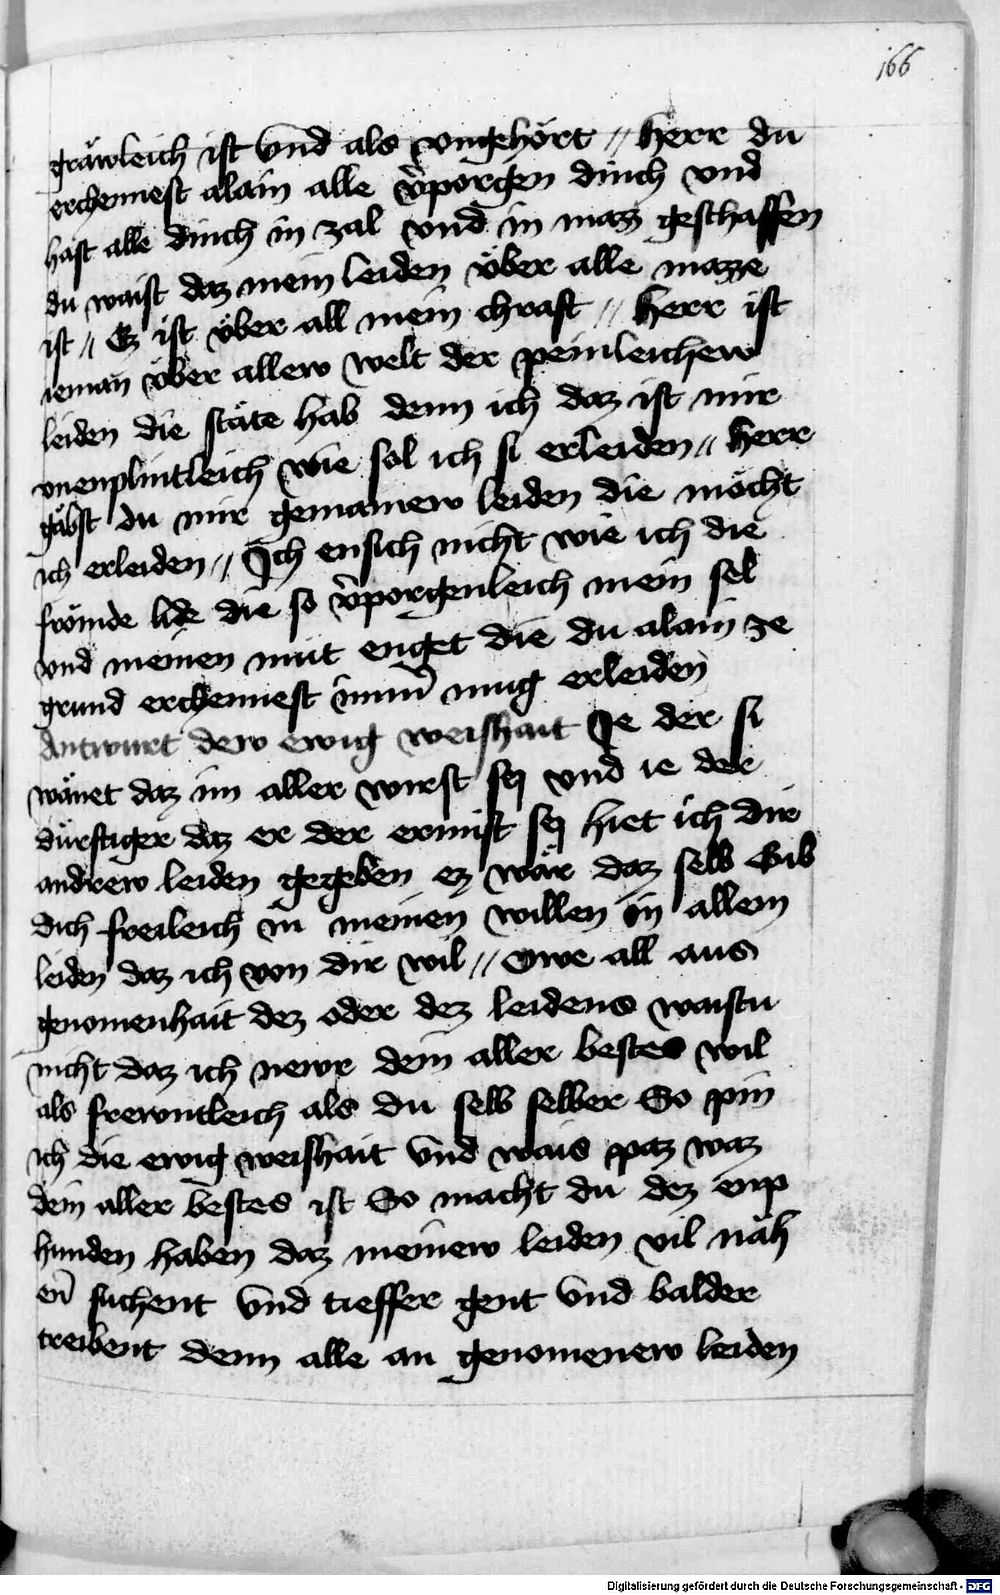 166
gräwleich ist vnd als vngehört // Herr du
erchennest alain alle v̉porgen dinch vnd
hast alle dinch in zal vnd in mazz geschaffen
du waist daz mein leiden über alle mazze
ist // Ez ist über all mein chraft // Herr ist
ieman über allew welt der peinleichew
leiden die stäte hab denn ich daz ist mir
vnenpfintleich wie sol ich si erleiden // Herr
gäbst du mir gemainew leiden die möcht
ich erleiden // Ich ensich nicht wie ich die
frömde lide die so v̉porgenleich mein sel
vnd meinen mut enget die du alain ze
grund erchennest imm̉ mug erleiden
Antwurt dew ewig weishait Ie der si
wänet daz im aller wirst sey vnd ie der
dürftiger daz er der ermist sey hiet ich dir
andrew leiden gegeben ez wär daz selb Gib
dich freileich in meinen willen in allem
leiden daz ich von dir wil // Owe all aus
genomenhait dez oder dez leidens waistu
nicht daz ich newr dein aller bestes wil
als frewntleich als du selb selber So pin
ich die ewig weishait vnd wais paz waz
dein aller bestes ist So macht du dez enp
hunden haben daz meinew leiden vil näh
en̉ suchent vnd tieffer gent vnd balder
treibent denn alle an genomenew leiden
Digitalisierung gefördert durch die Deutsche Forschungsgemeinschaft - DFG